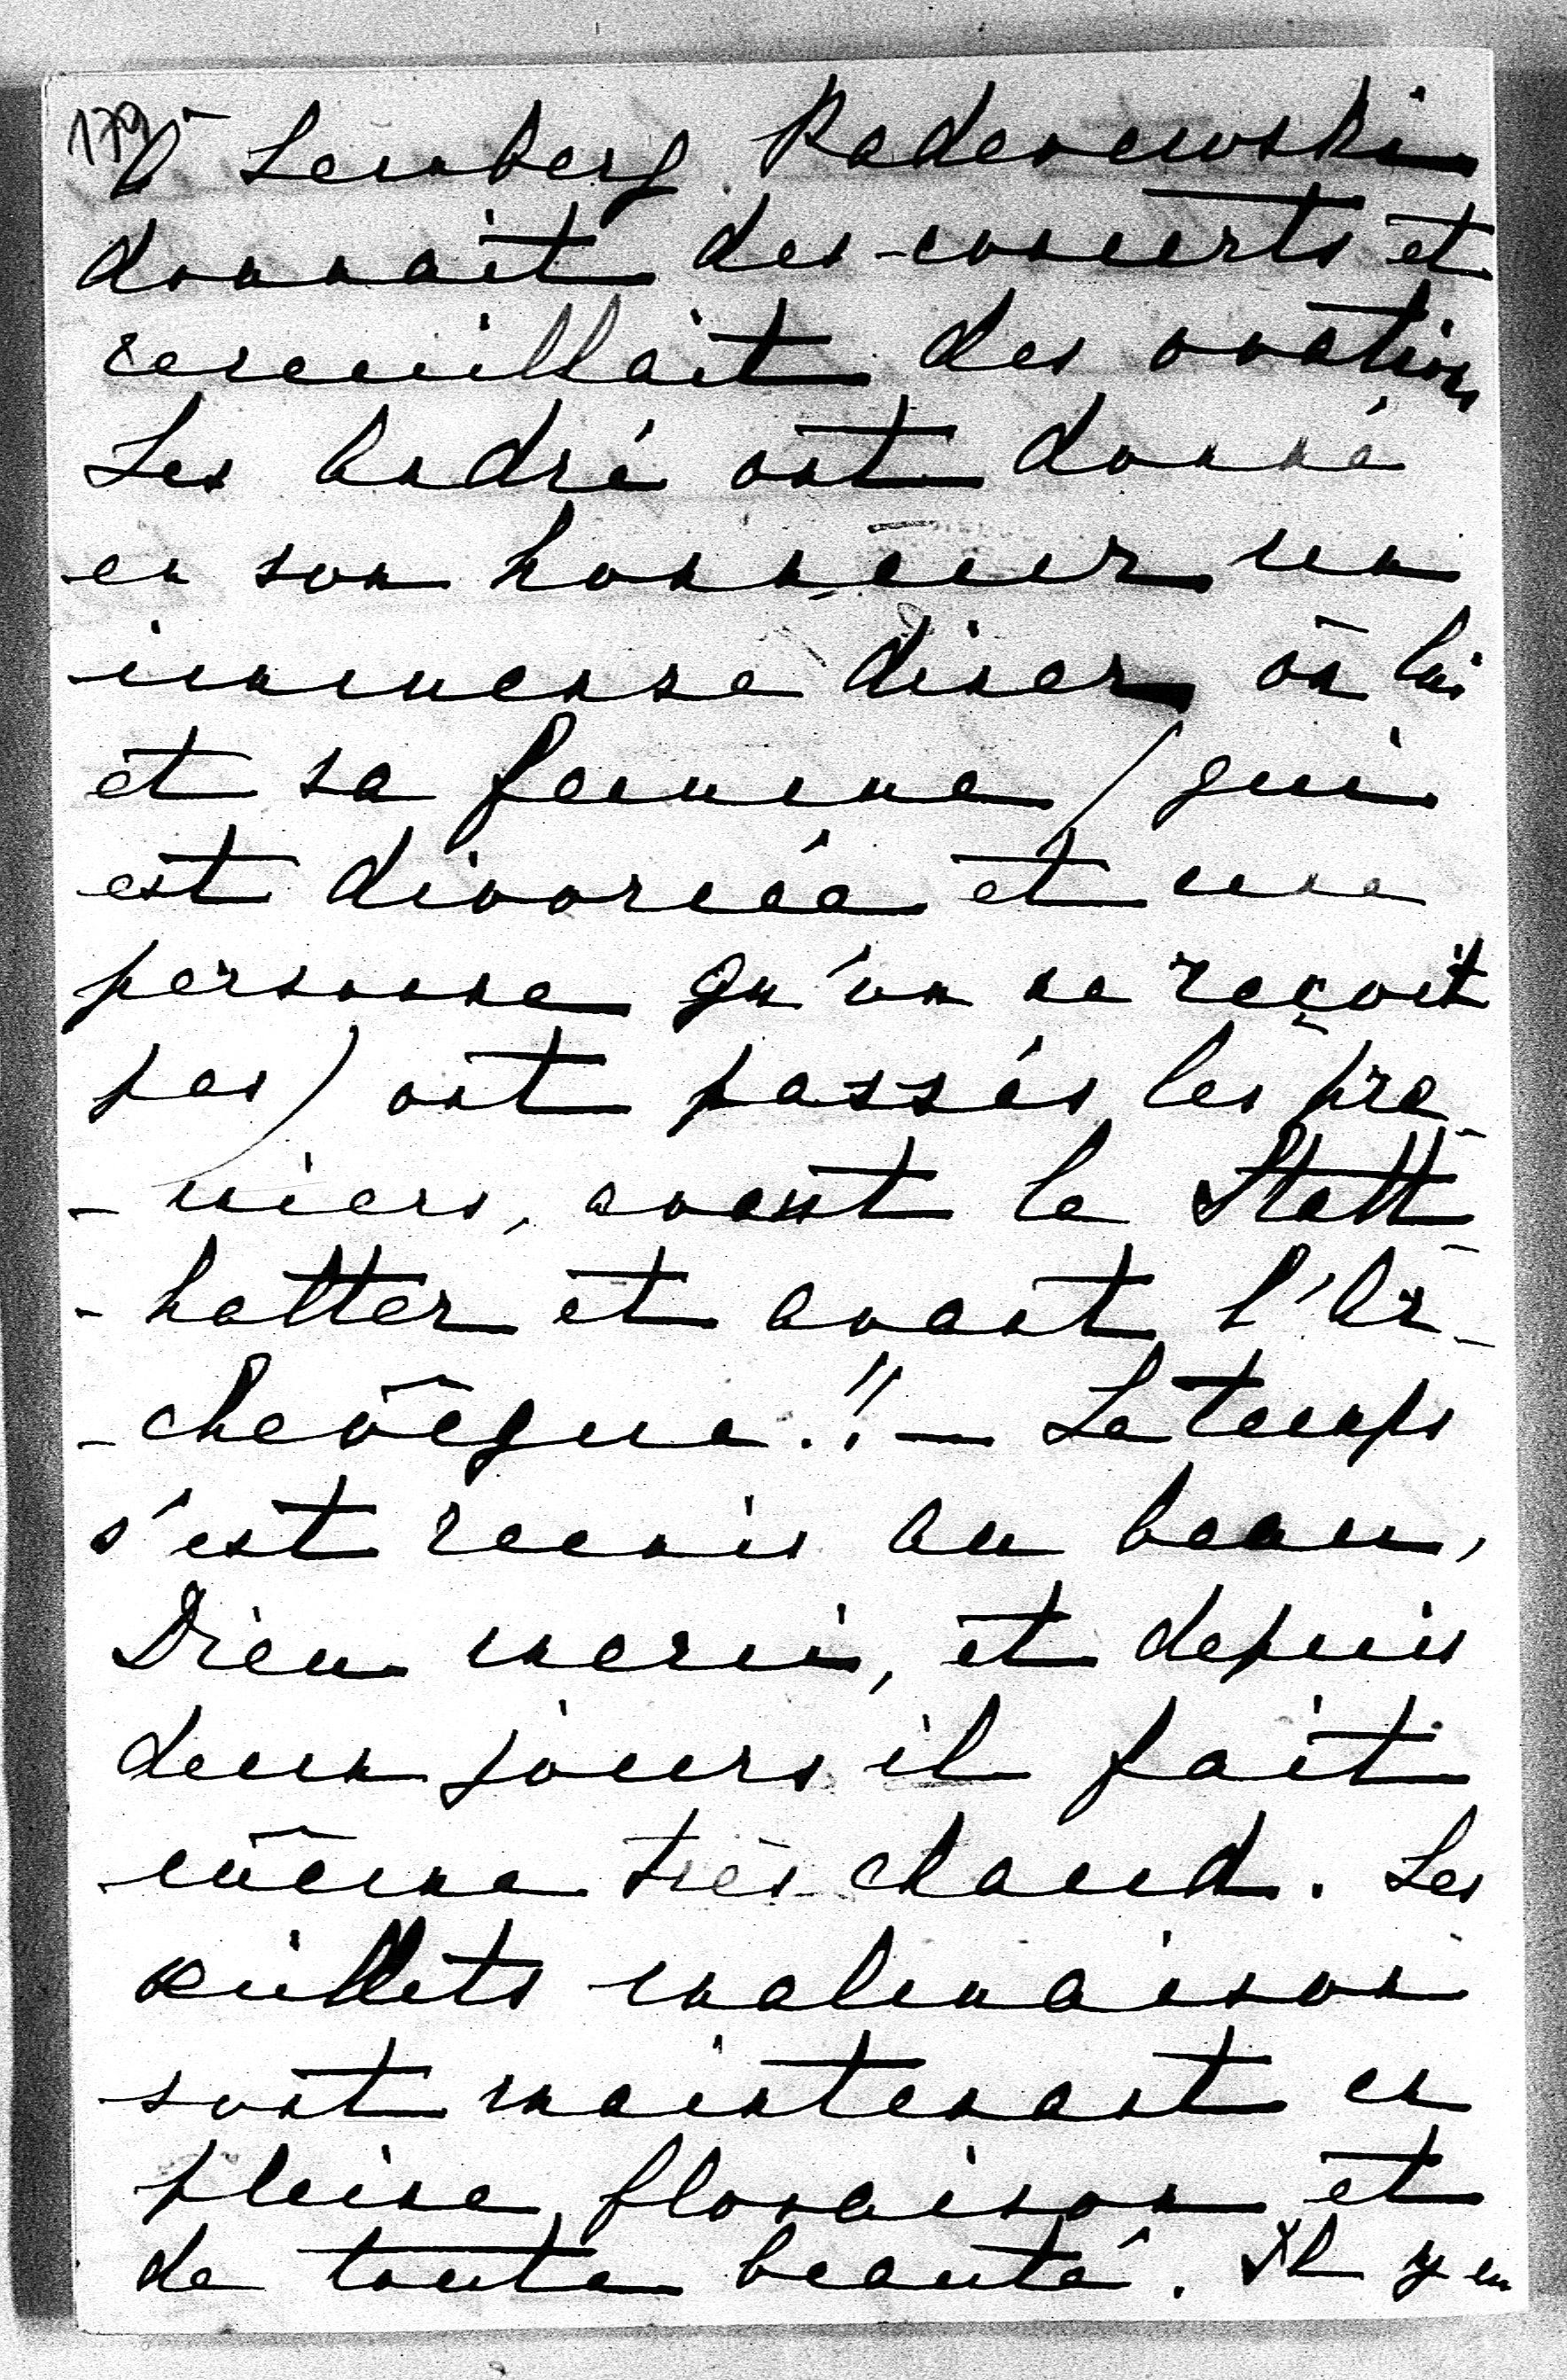 179
À Lemberg Paderewski
donnait des concerts et
recueillait des ovations
Les André ont donné
en son honneur un
immense diner où lui
et sa femme (qui
est divorcée et une
personne qu'on ne reçoit
pas) ont passés les pre-
-miers, avant le Statt-
-halter et avant l'Ar-
-chevêque!! — Le temps
s'est remis au beau,
Dieu merci, et depuis
deux jours il fait
même très chaud. Les
œillets malmaison
sont maintenant en
pleine floraison et
de toute beauté. Il y en